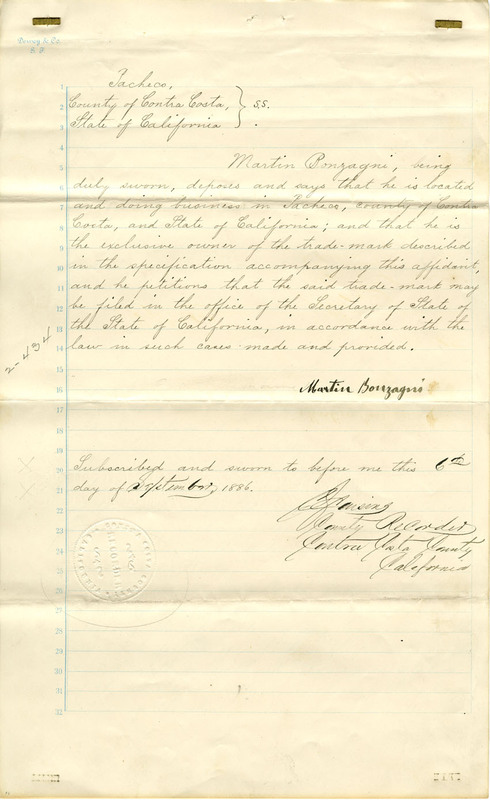 Dewey & Co.
S. F.
Pacheco,
County of Contra Costa, } S.S.
State of California
Martin Bonzagni, being
duly sworn, deposes and says that he is located
and doing business in Pacheco, county of Contra
Costa, and State of California; and that he is
the exclusive owner of the trade-mark described
in the specification accompanying this affidavit,
and he petitions that the said trade-mark may
be filed in the office of the Secretary of State of
the State of California, in accordance with the
law in such cases made and provided.
2-434
Martin Bonzagni
Subscribed and sworn to before me this 6th
day of September, 1886.
County Recorder
Contra Costa County
California